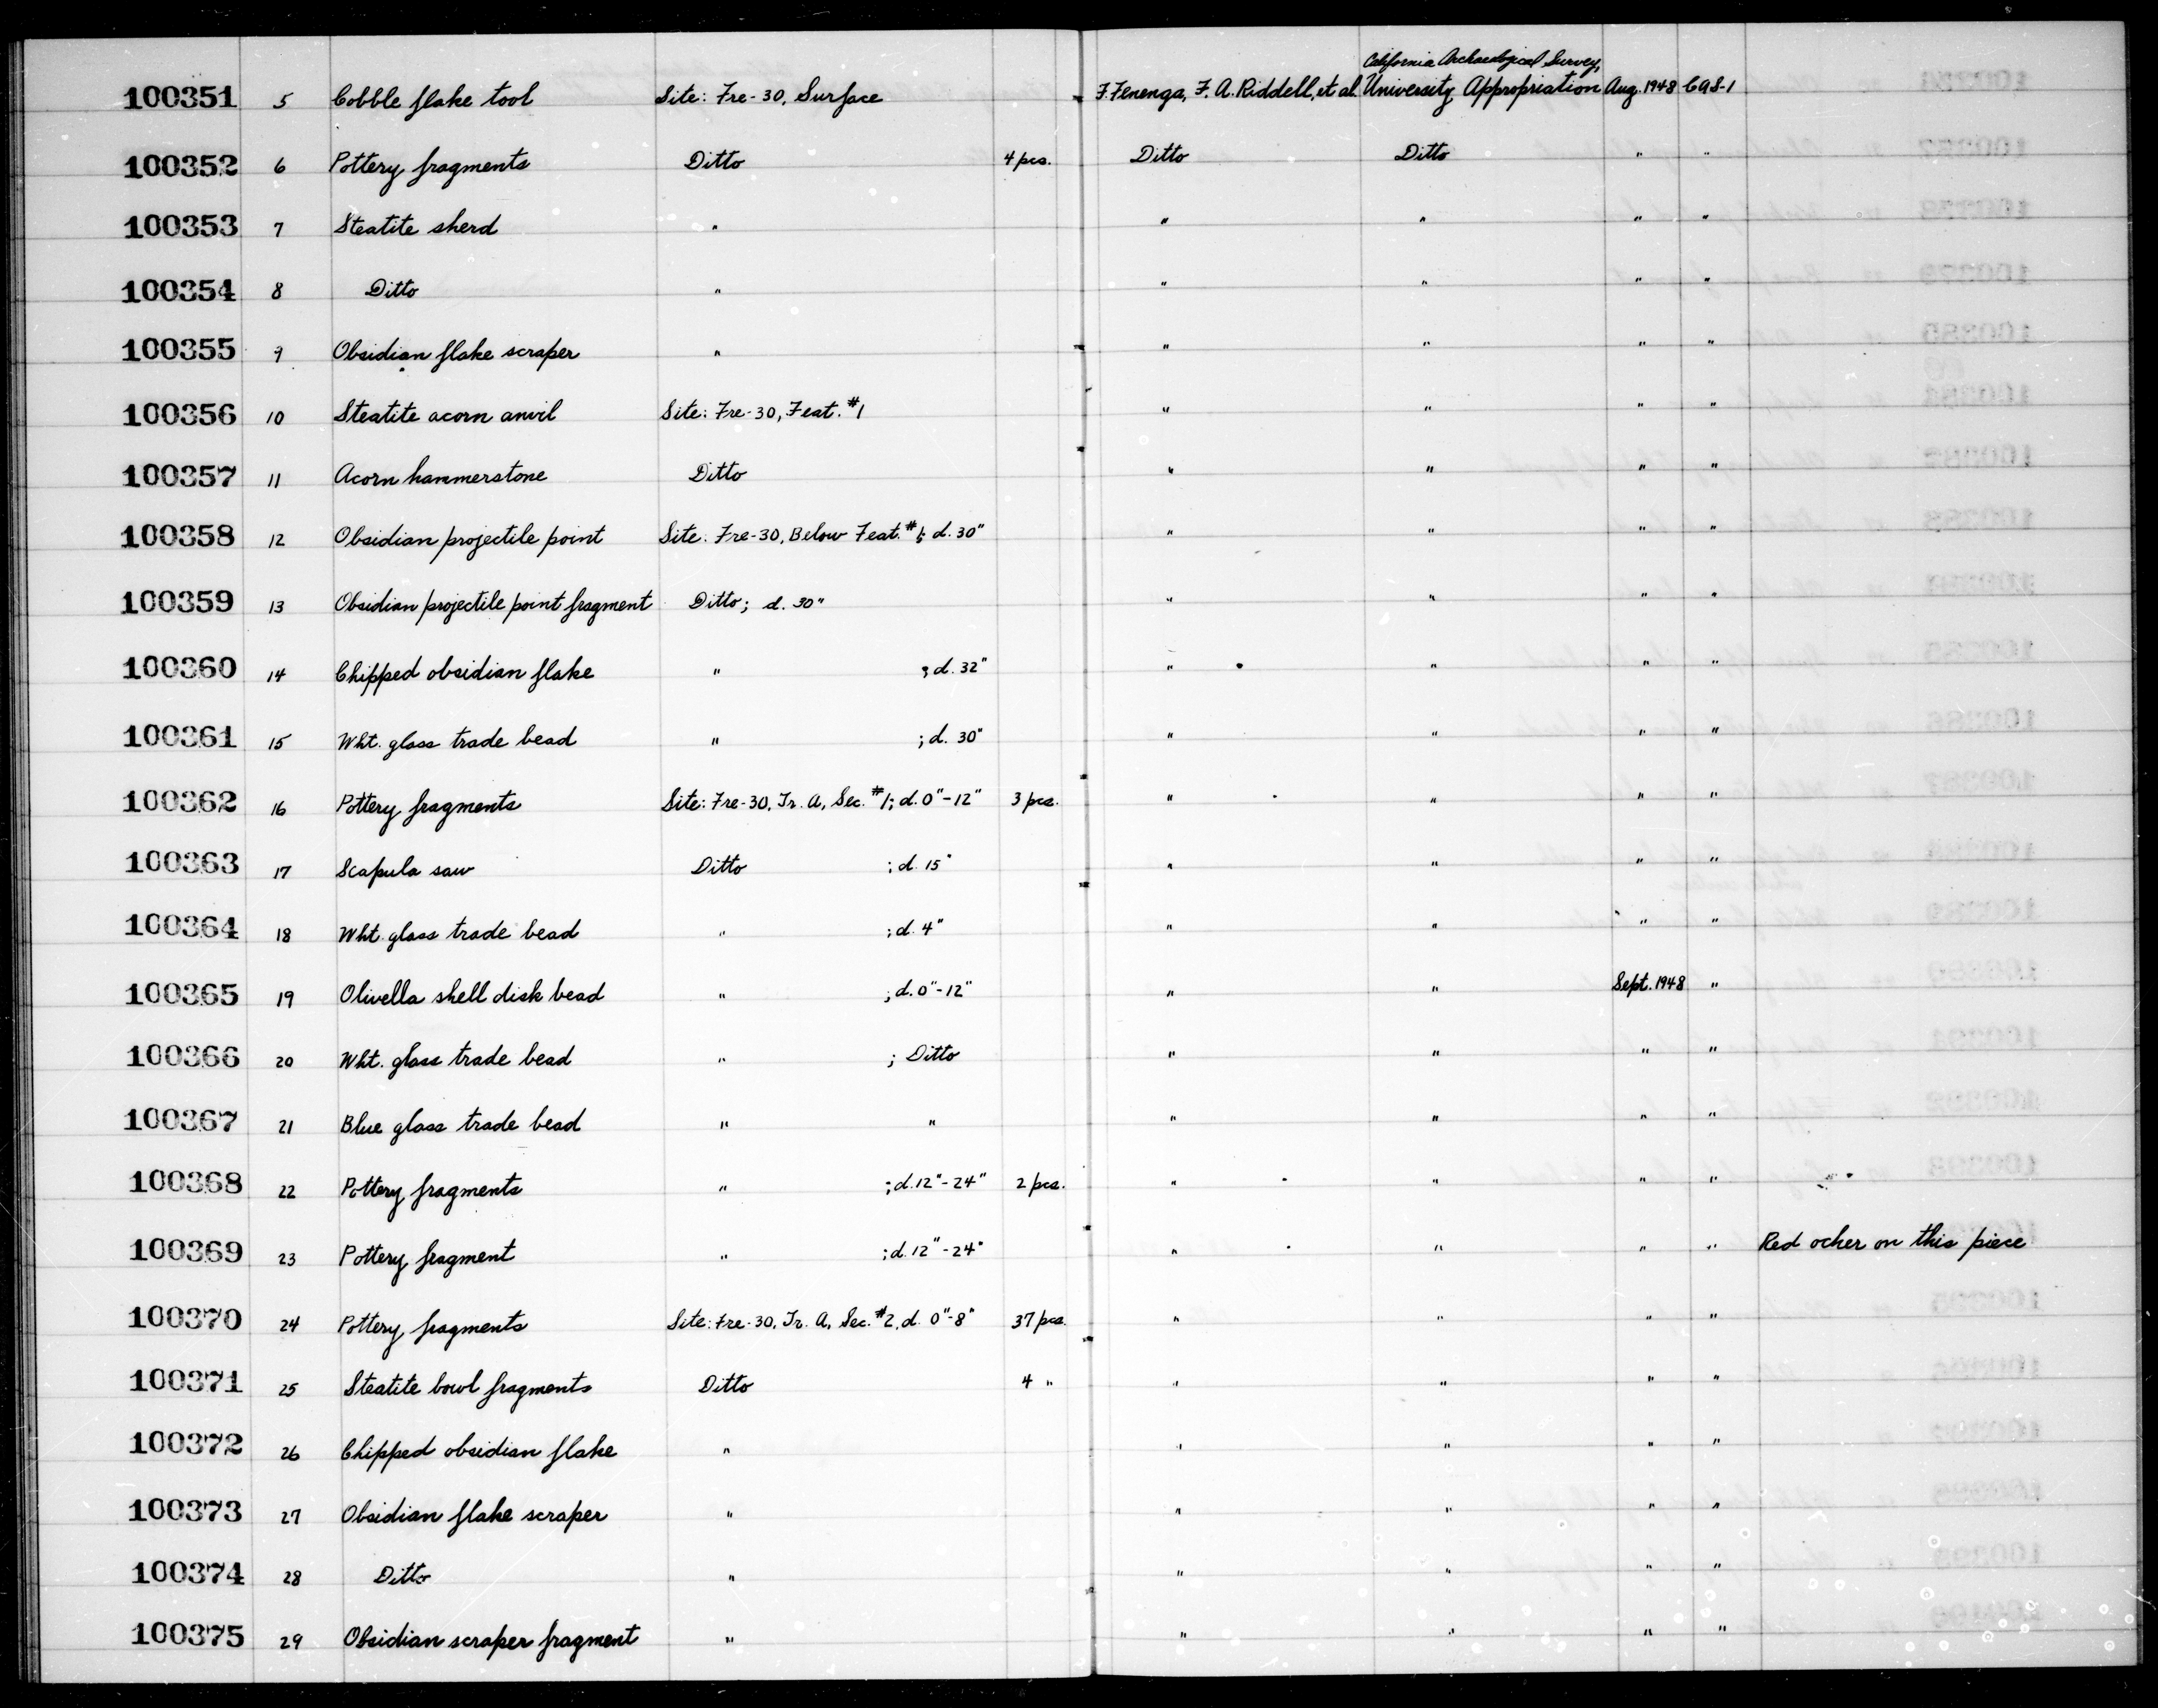 California Archaeological Survey,
100351 5 Cobble flake tool Site: Fre-30, Surface F. Fenenga, F. A. Riddell, et al. University Appropriation Aug. 1948 CAS-1
100352 6 Pottery fragments Ditto 4 pcs. Ditto Ditto " "
100353 7 Steatite sherd " " " " "
100354 8 Ditto " " " " "
100355 9 Obsidian flake scraper " " " " "
100356 10 Steatite acorn anvil Site: Fre-30, Feat. #1 " " " "
100357 11 Acorn hammerstone Ditto " " " "
100358 12 Obsidian projectile point Site: Fre-30, Below Feat. #1; d. 30" " " " "
100359 13 Obsidian projectile point fragment Ditto; d. 30" " " " "
100360 14 Chipped obsidian flake " ; d. 32" " " " "
100361 15 Wht. glass trade bead " ; d. 30" " " " "
100362 16 Pottery fragments Site: Fre-30, Tr. A, Sec. #1; d. 0"-12" 3 pcs. " " " "
100363 17 Scapula saw Ditto ; d. 15" " " " "
100364 18 Wht. glass trade bead " ; d. 4" " " " "
100365 19 Olivella shell disk bead " ; d. 0"-12" " " Sept. 1948 "
100366 20 Wht. glass trade bead " ; Ditto " " " "
100367 21 Blue glass trade bead " " " " " "
100368 22 Pottery fragments " ; d. 12"-24" 2 pcs. " " " "
100369 23 Pottery fragment " ; d. 12"-24" " " " " Red ocher on this piece
100370 24 Pottery fragments Site: Fre-30, Tr. A, Sec. #2, d. 0"-8" 37 pcs. " " " "
100371 25 Steatite bowl fragments Ditto 4 " " " " "
100372 26 Chipped obsidian flake " " " " "
100373 27 Obsidian flake scraper " " " " "
100374 28 Ditto " " " " "
100375 29 Obsidian scraper fragment " " " " "